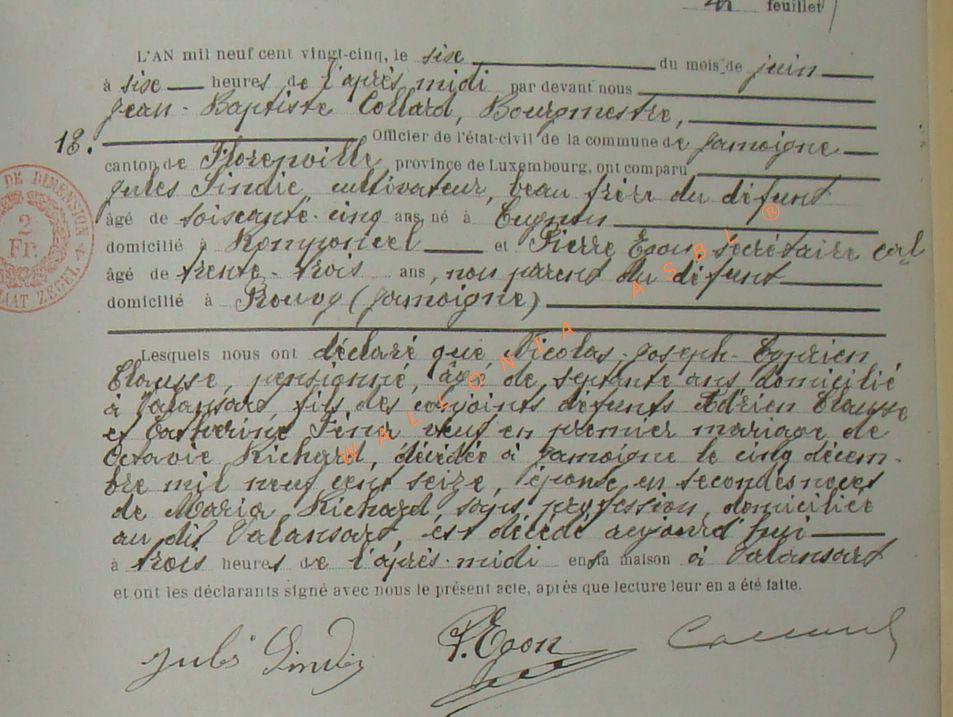 feuillet
L'AN mil neuf cent vingt-cinq, le sise du mois de juin
à sise heures de l'après midi par devant nous
Jean-Baptiste Collard, Bourgmestre,
13. Officier de l'état-civil de la commune de Jamoigne
canton de Florenville, province de Luxembourg, ont comparu
Jules Lindié, cultivateur, beau frère du défunt
âgé de soisante-cinq ans, né à Cugnon
domicilié à Romponcel et Pierre Egon, secrétaire cal
âgé de trente-trois ans, non parent du défunt
domicilié à Prouvy (Jamoigne)
Lesquels nous ont déclaré que Nicolas-Joseph-Cyprien
Clausse, pensionné, âgé de septante ans domicilié
à Valansart, fils des conjoints défunts Adrien Clausse
et Catherine veuf en premier mariage de
Octavie Richard, décédée à Jamoigne le cinq décem-
bre mil neuf cent seize, époux en secondes noces
de Maria Richard sans profession, domiciliée
au dit Valansart, est décédé aujourd'hui
à trois heures de l'après-midi en sa maison à Valansart
et ont les déclarants signé avec nous le présent acte, après que lecture leur en a été faite.
Jules Lindié P. Egon Collard
DE DIMENSION
2
Fr.
ZEGEL
WALLONIA ASBL ®